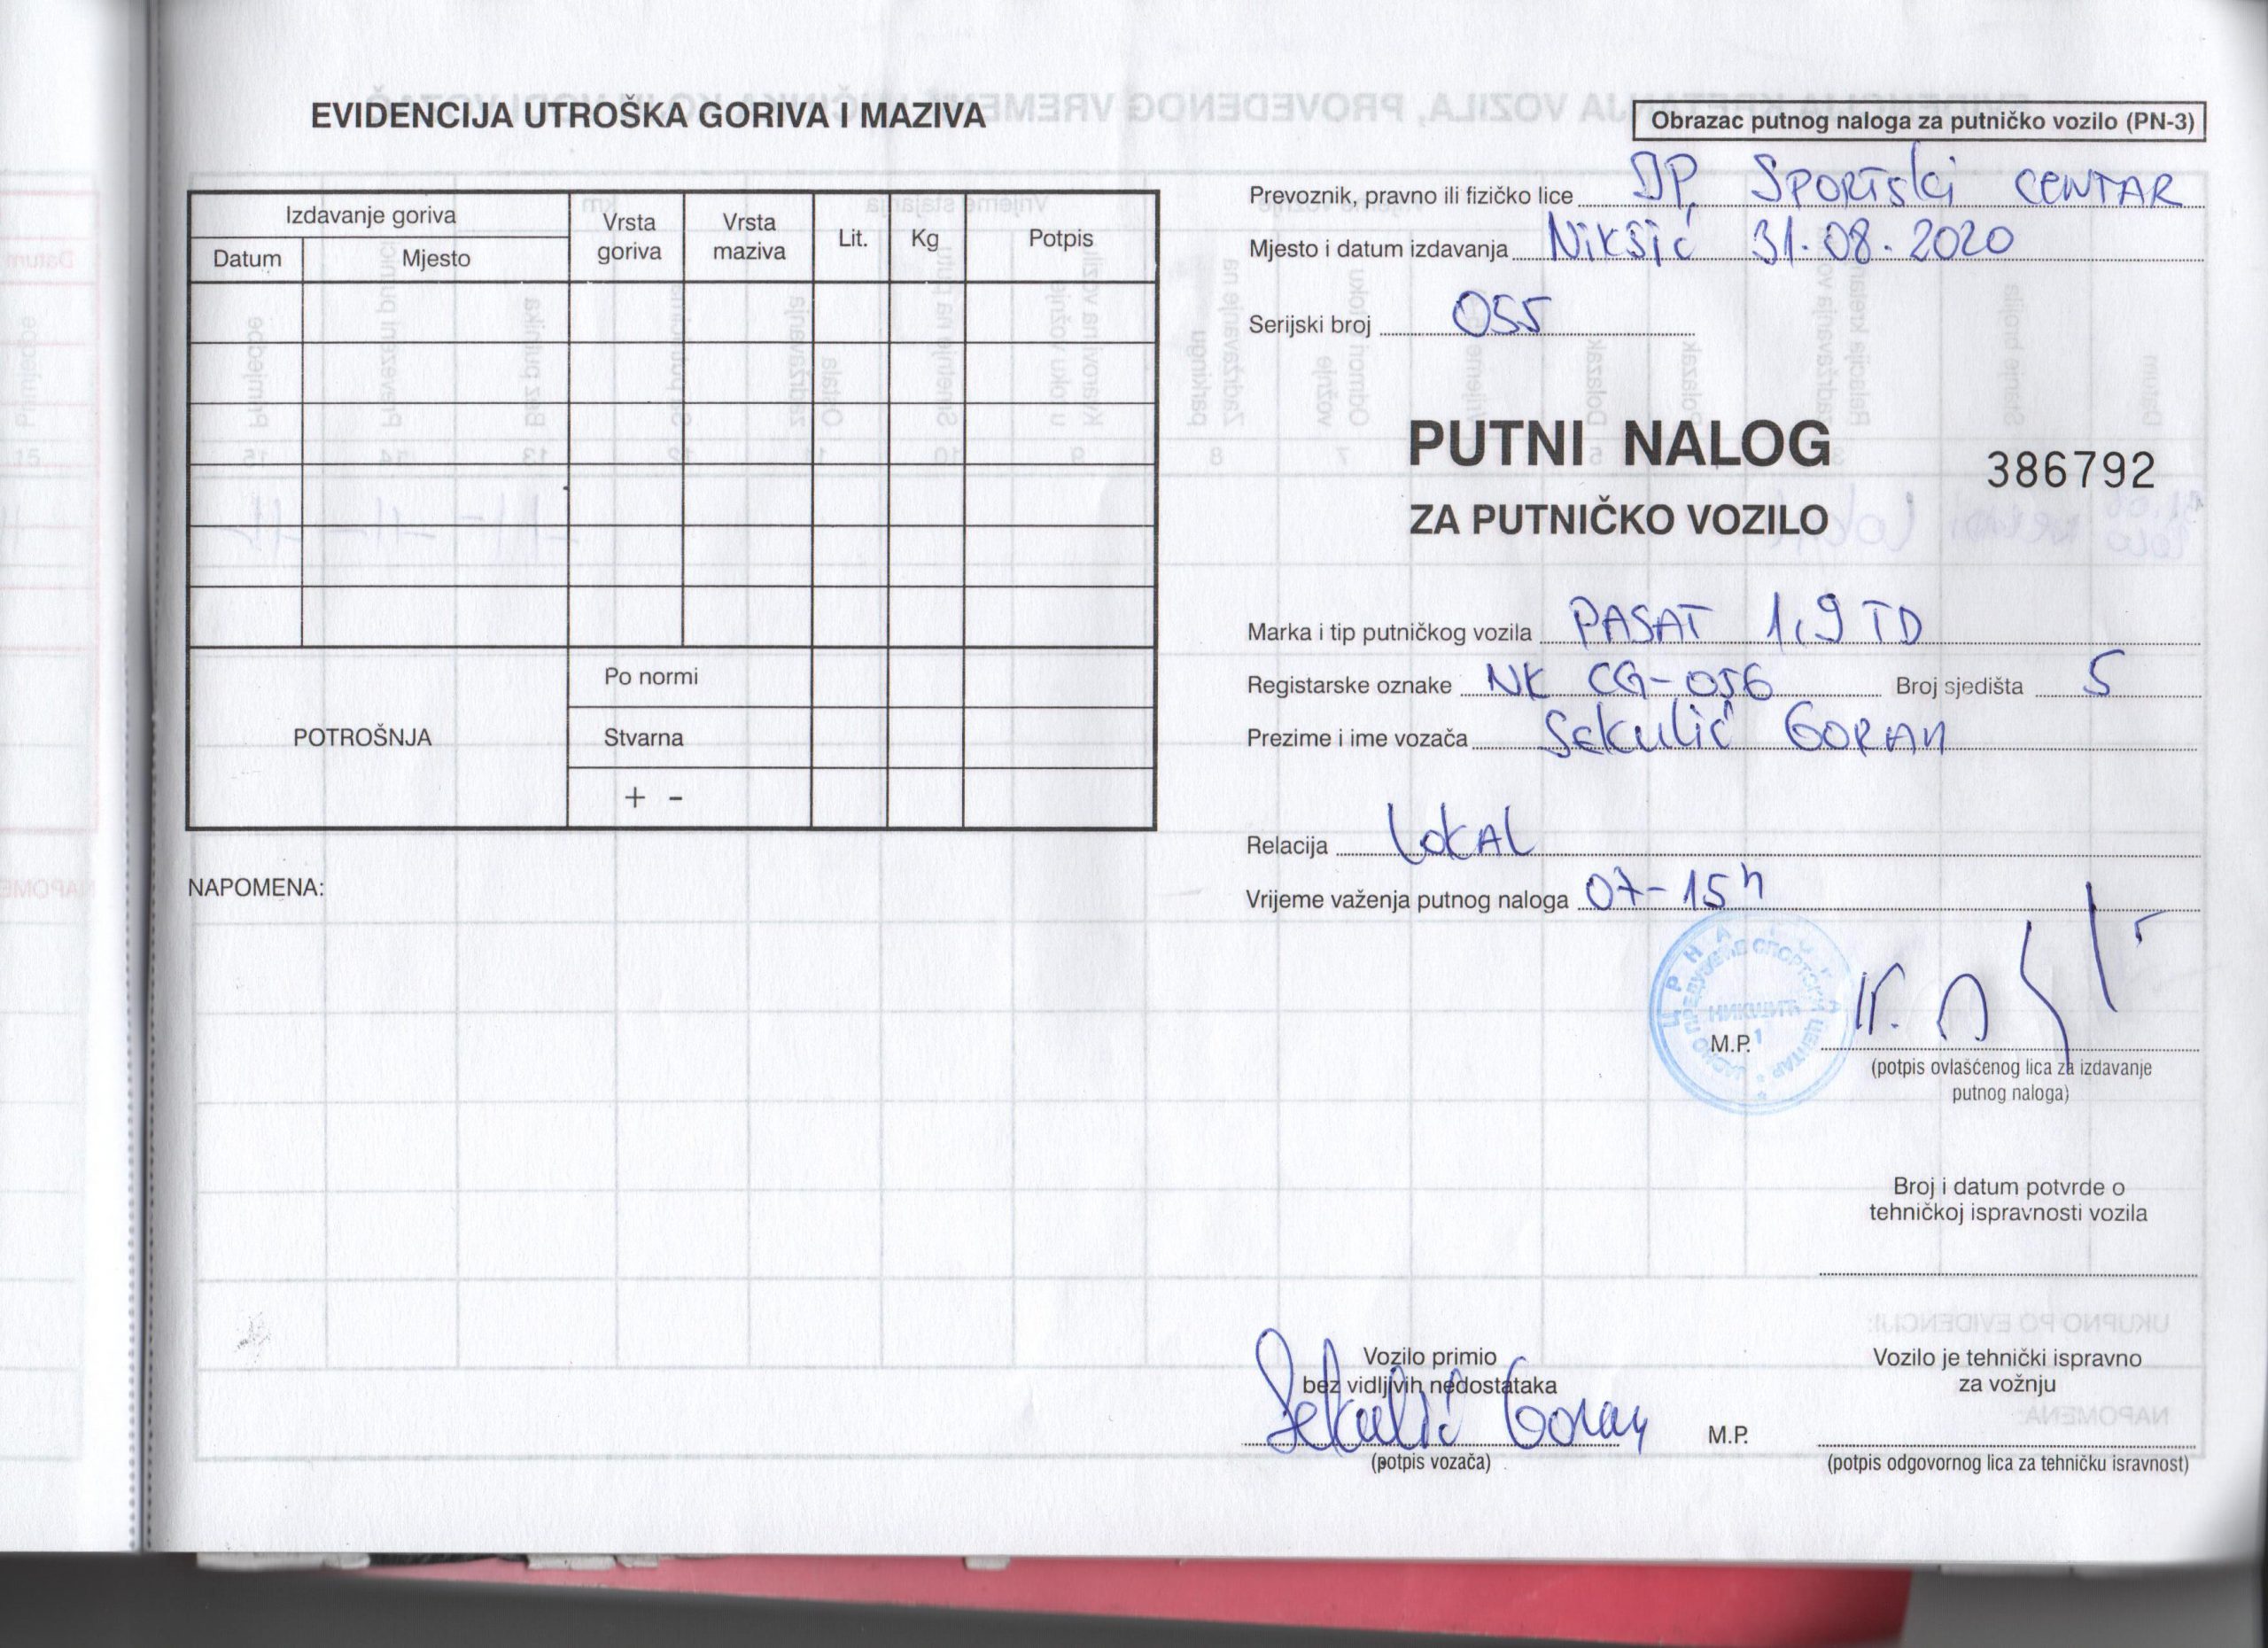 EVIDENCIJA UTROŠKA GORIVA I MAZIVA
Izdavanje goriva
Datum
Mjesto
Vrsta goriva
Vrsta maziva
Lit.
Kg
Potpis
POTROŠNJA
Po normi
Stvarna
+ -
NAPOMENA:
Obrazac putnog naloga za putničko vozilo (PN-3)
Prevoznik, pravno ili fizičko lice DP. Sportski CENTAR
Mjesto i datum izdavanja Nikšić 31.08.2020
Serijski broj 055
PUTNI NALOG
386792
ZA PUTNIČKO VOZILO
Marka i tip putničkog vozila PASAT 1,9 TD
Registarske oznake NK CG-056 Broj sjedišta 5
Prezime i ime vozača Sekulić GORAN
Relacija LOKAL
Vrijeme važenja putnog naloga 07-15h
ЦРНА ГОРА
СПОРТСКИ ЦЕНТАР
НИКШИЋ
1
M.P.
(potpis ovlašćenog lica za izdavanje
putnog naloga)
Broj i datum potvrde o
tehničkoj ispravnosti vozila
Vozilo primio
bez vidljivih nedostataka
Sekulić Goran
(potpis vozača)
M.P.
Vozilo je tehnički ispravno
za vožnju
(potpis odgovornog lica za tehničku isravnost)